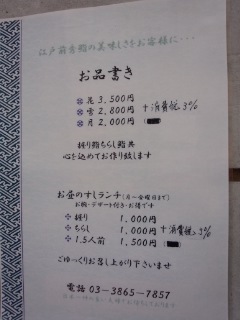 江戸前寿司の美味しさをお客様に・・・
お品書き
花 3,500円
雪 2,800円 + 消費税 3%
月 2,000円
握り鮨ちらし鮨共
心を込めてお作り致します
お昼のすしランチ(月〜金曜日まで)
お椀・デザート付き・お得です
握り 1,000円
ちらし 1,000円 + 消費税 3%
1.5人前 1,500円
ごゆっくりお召し上がり下さいませ
電話 03-3865-7857